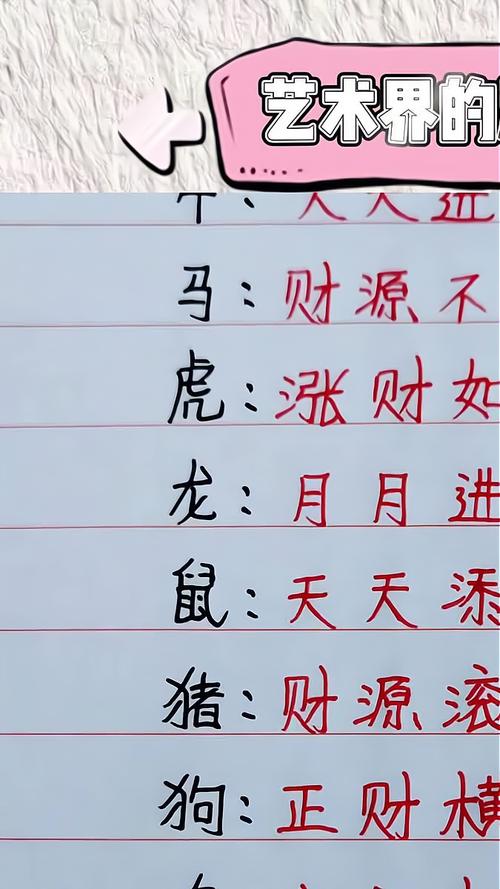 艺术界的
牛：天天进
马：财源不
虎：涨财如
龙：月月进
鼠：天天添
猪：财源滚
狗：正财横